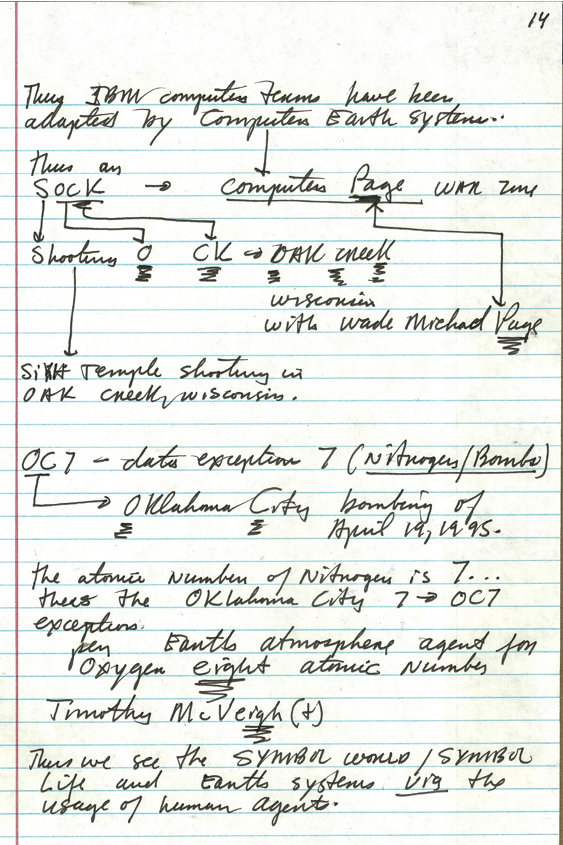 14
Thus IBM computer terms have been
adapted by Computer Earth System..
thus an
SOCK → Computer Page WAR zone
Shooting O CK → OAK creek
wisconsin
with wade Michael Page
SiKH Temple shooting in
OAK creek, wisconsin.
OC7 – data exception 7 (Nitrogen/Bombs)
OKlahoma City bombing of
April 19, 1995.
the atomic number of Nitrogen is 7...
thus the OKlahoma City 7 → OC7
exception.
per Earth atmosphere agent for
Oxygen eight atomic number
Timothy McVeigh (t)
Thus we see the SYMBOL world / SYMBOL
Life and Earth systems via the
usage of human agents.